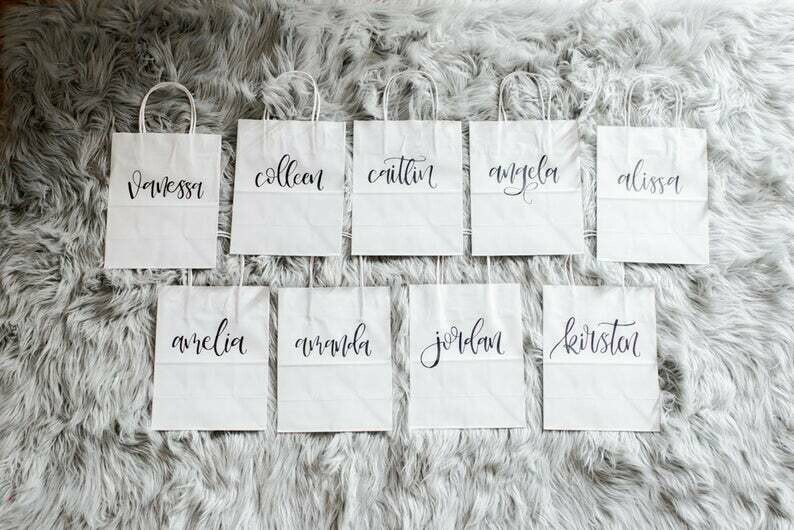 vanessa
colleen
caitlin
angela
alissa
amelia
amanda
jordan
kirsten